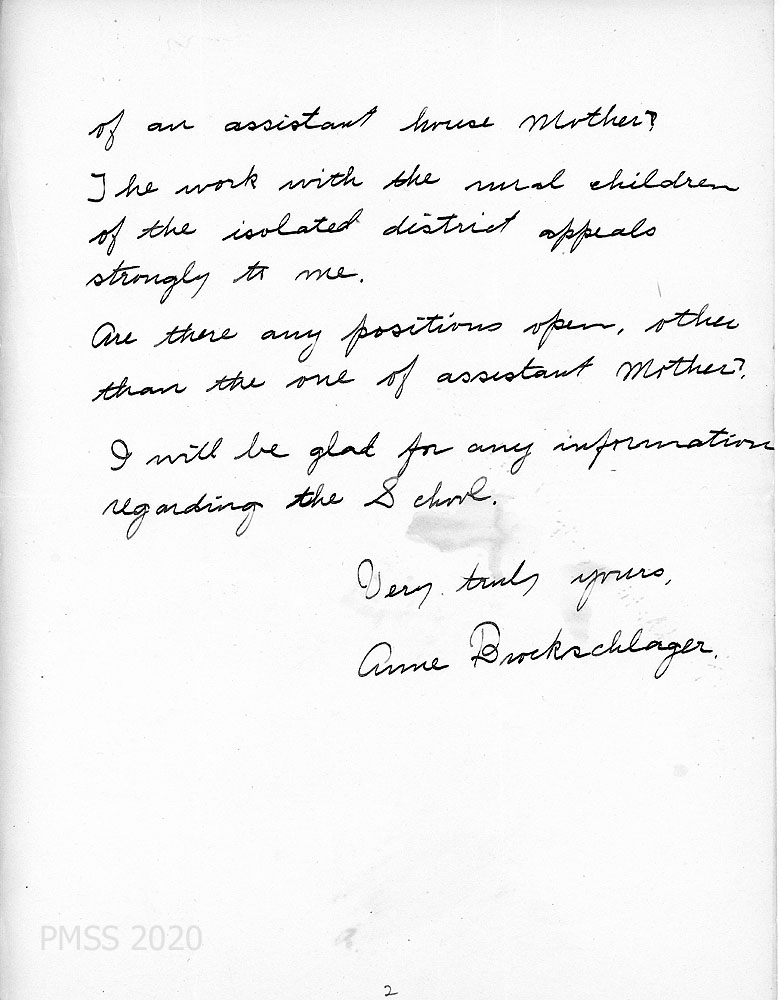 of an assistant house Mother?
The work with the rural children
of the isolated district appeals
strongly to me.
Are there any positions open, other
than the one of assistant Mother?
I will be glad for any information
regarding the School.
Very truly yours,
Anne Brockschlager.
PMSS 2020
2